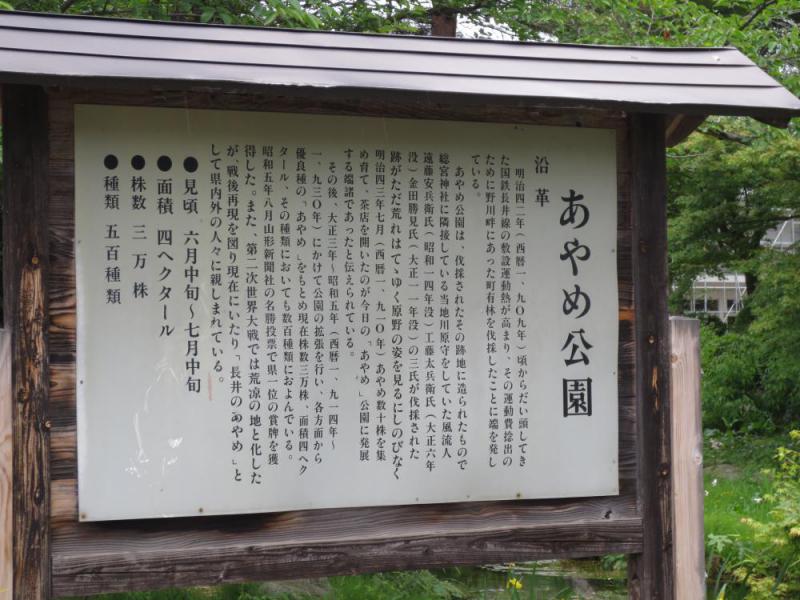 あやめ公園
沿革
明治四二年（西暦一、九〇九年）頃からだい頭してき
た国鉄長井線の敷設運動熱が高まり、その運動費捻出の
ために野川畔にあった町有林を伐採したことに端を発し
ている。
あやめ公園は、伐採されたその跡地に造られたもので
総宮神社に隣接している当地川原守をしていた風流人
遠藤安兵衛氏（昭和一四年没）工藤太兵衛氏（大正六年
没）金田勝見氏（大正一一年没）の三氏が伐採された
跡がただ荒れはてゝゆく原野の姿を見るにしのびなく
明治四三年七月（西暦一、九一〇年）あやめ数十株を集
め育て、茶店を開いたのが今日の「あやめ」公園に発展
する端緒であったと伝えられている。
その後、大正三年～昭和五年（西暦一、九一四年～
一、九三〇年）にかけて公園の拡張を行い、各方面から
優良種の「あやめ」をもとめ現在株数三万株、面積四ヘク
タール、その種類においても数百種類におよんでいる。
昭和五年八月山形新聞社の名勝投票で県一位の賞牌を獲
得した。また、第二次世界大戦では荒凉の地と化した
が、戦後再現を図り現在にいたり「長井のあやめ」と
して県内外の人々に親しまれている。
●見頃 六月中旬～七月中旬
●面積 四ヘクタール
●株数 三万株
●種類 五百種類